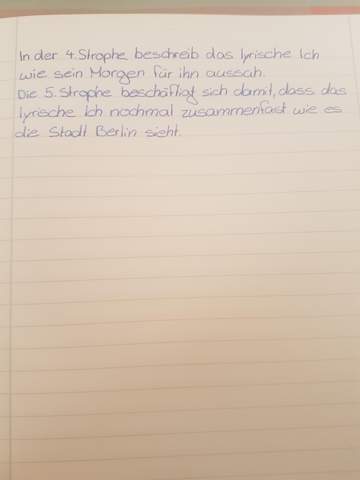 In der 4. Strophe beschreib das lyrische Ich
wie sein Morgen für ihn aussah.
Die 5. Strophe beschäftigt sich damit, dass das
lyrische Ich nochmal zusammenfast wie es
die Stadt Berlin sieht.